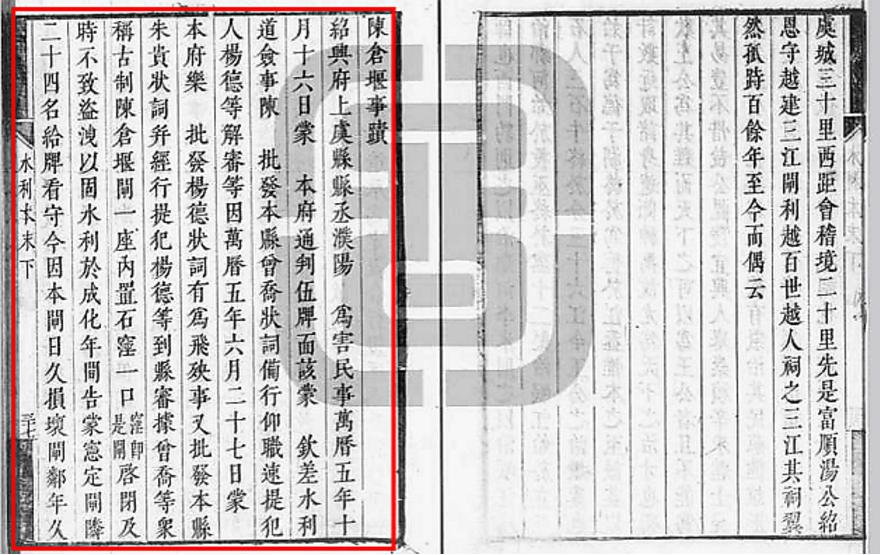 虞城三十里西距會稽境二十里先是富順湯公紹
恩守越建三江閘利越百世越人祠之三江其祠翼
然孤時百餘年至今而偶云
陳倉堰事蹟
紹興府上虞縣縣丞濮陽 爲害民事萬曆五年十
月十六日蒙 本府通判伍牌面該蒙 欽差水利
道僉事陳 批發本縣曾喬狀詞備行仰職速提犯
人楊德等解審等因萬曆五年六月二十七日蒙
本府樂 批發楊德狀詞有爲飛殃事又批發本縣
朱貴狀詞并經行提犯楊德等到縣審據曾喬等衆
稱古制陳倉堰閘一座內置石窪一口窪卽是閘啓閉及
時不致盜洩以固水利於成化年間告蒙憲定閘隣
二十四名給牌看守今因本閘日久損壞閘鄰年久
水利本末下